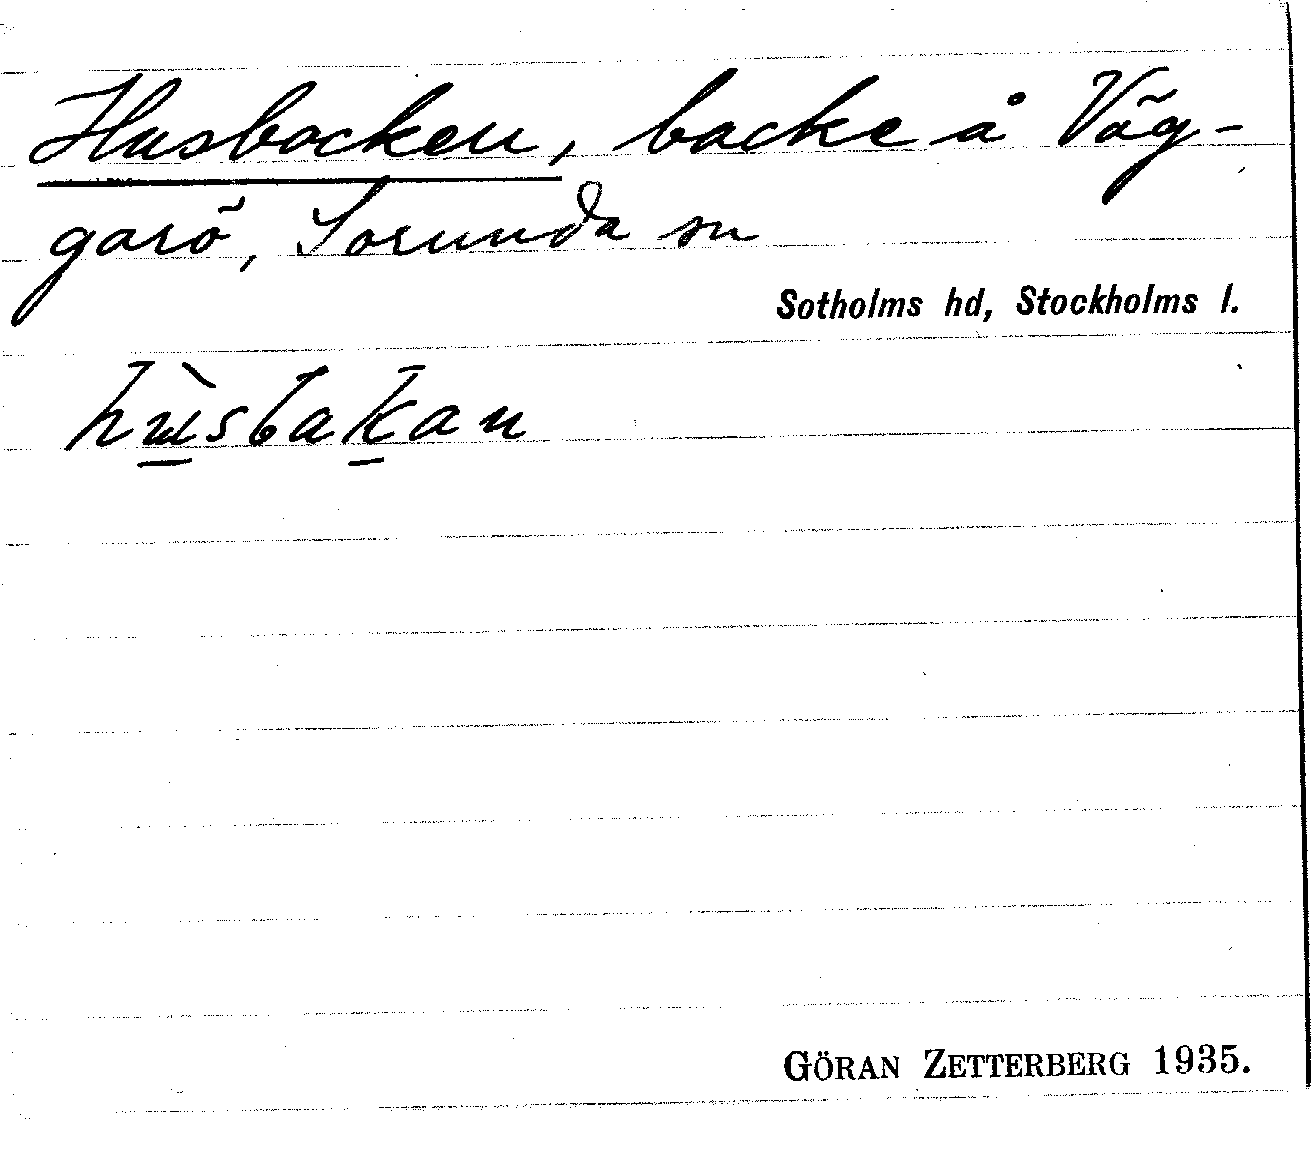 Husbacken, backe å Väg-
garö, Sorunda sn
Sotholms hd, Stockholms l.
hùsbakan
GÖRAN ZETTERBERG 1935.